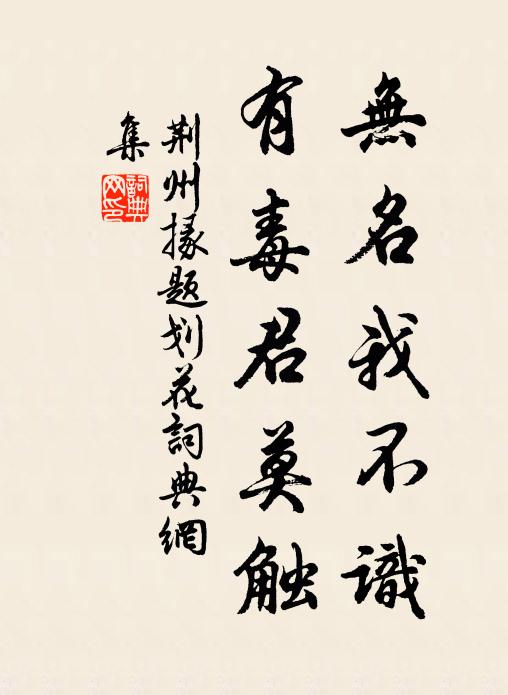 無名我不識
有毒君莫触
荆州掾题划花詞典網
集
詞典
网印